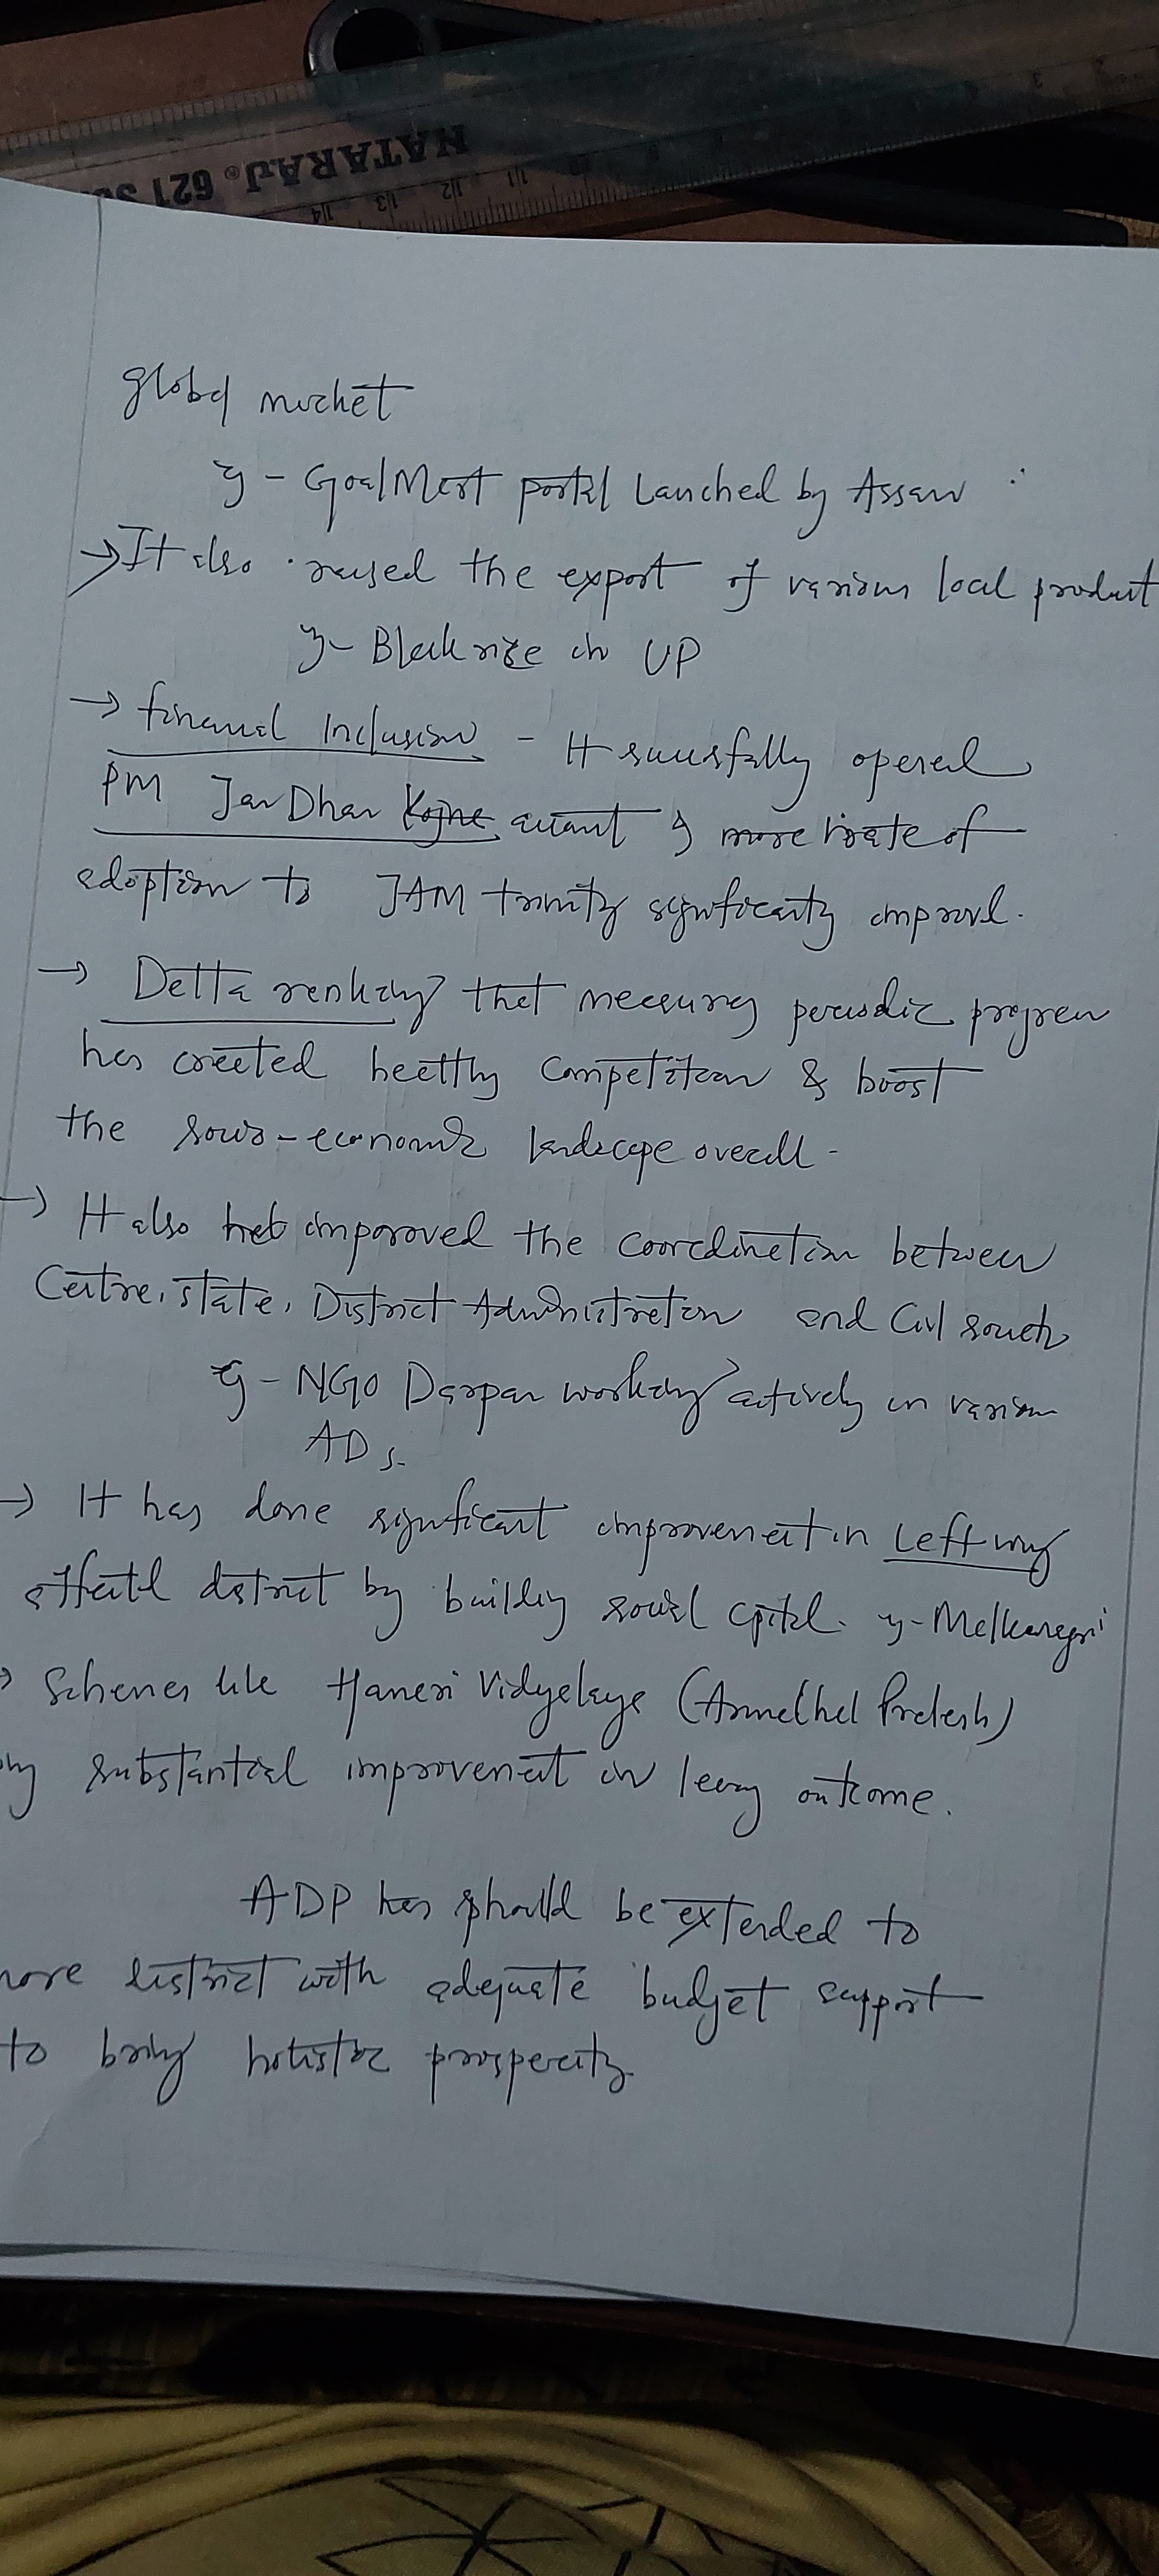 NATARAJ® 621
global market
eg - GoalMart portal Lanched by Assam
→ It also raised the export of various local product
eg - Black rice in UP
→ financial Inclusion - It sucessfully opened
PM Jan Dhan account & rate of
adoption to JAM trinity significantly improved.
→ Delta ranking that measuring periodic progress
has created healthy competition & boost
the socio-economic landscape overall -
→ It also improved the coordination between
Centre, state, District Administration and Civil society
eg - NGO Darpan working actively in various
ADs.
→ It has done significant improvement in Left wing
effected district by building social capital. eg - Malkangiri
→ Schemes like Hamari Vidyalaya (Arunachal Pradesh)
substantial improvement in learning outcome.
ADP should be extended to
more district with adequate budget support
to bring holistic prosperity.